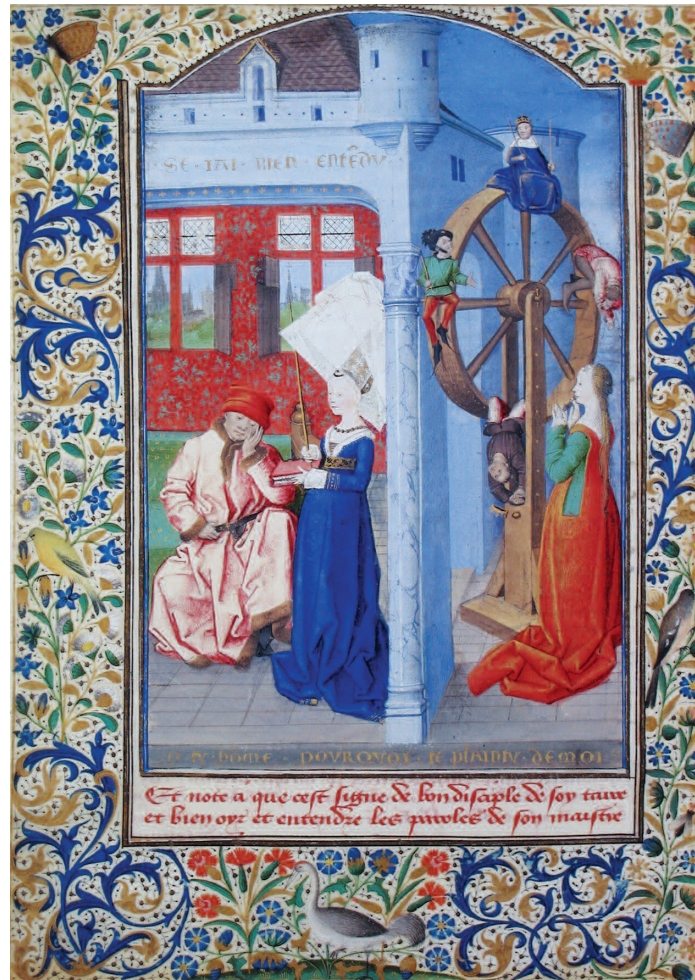 SE · IAI · BIEN · ENTĒDV
HOME · POVRQVOI · TE PLAINS · DEMOI
Et note a que cest signe de bon disciple de soy taire
et bien oyr et entendre les paroles de son maistre